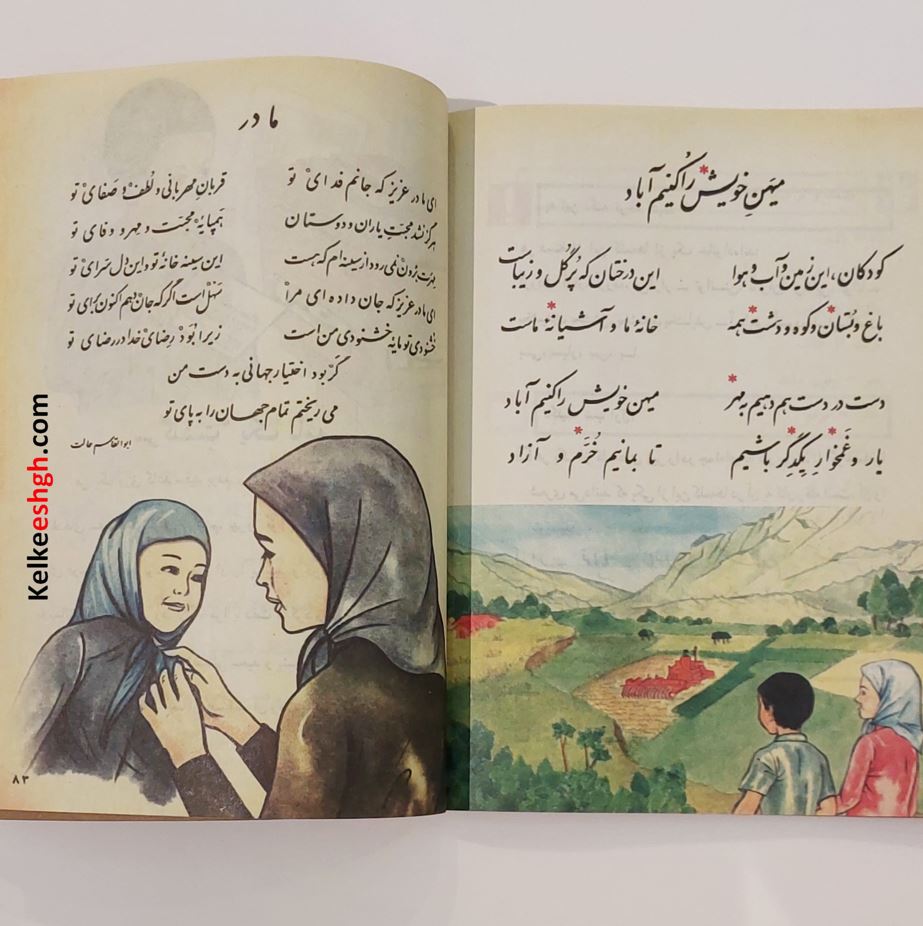 میهن خویش را کنیم آباد
کودکان، این زمین و آب و هوا این درختان که پُرگُل و زیباست
باغ و بُستان و کوه و دشت همه خانهٔ ما و آشیانهٔ ماست
دست در دست هم دهیم به مهر میهن خویش را کنیم آباد
یار و غَمخوارِ یکدِگر باشیم تا بمانیم خُرَّم و آزاد
مادر
ای مادر عزیز که جانم فدایْ تو قربانِ مهربانی و لُطفْ و صَفایْ تو
هرگز نشد محبّتِ یاران و دوستان همپایهٔ محبّت و مهر و وفای تو
مهرت برونْ نمی رود از سینه ام که هست این سینه خانهٔ تو و این دل سَرایْ تو
ای مادر عزیز که جان داده ای مرا سَهْل است اگر که جانْ دهم اکنون برای تو
خشنودی تو مایهٔ خشنودی من است زیرا بُوَدْ رِضایْ خدا در رضای تو
گَر بود اختیار جهانی به دست من
می ریختم تمام جهان را به پای تو
ابوالقاسم حالت
۸۳
Kelkeeshgh.com